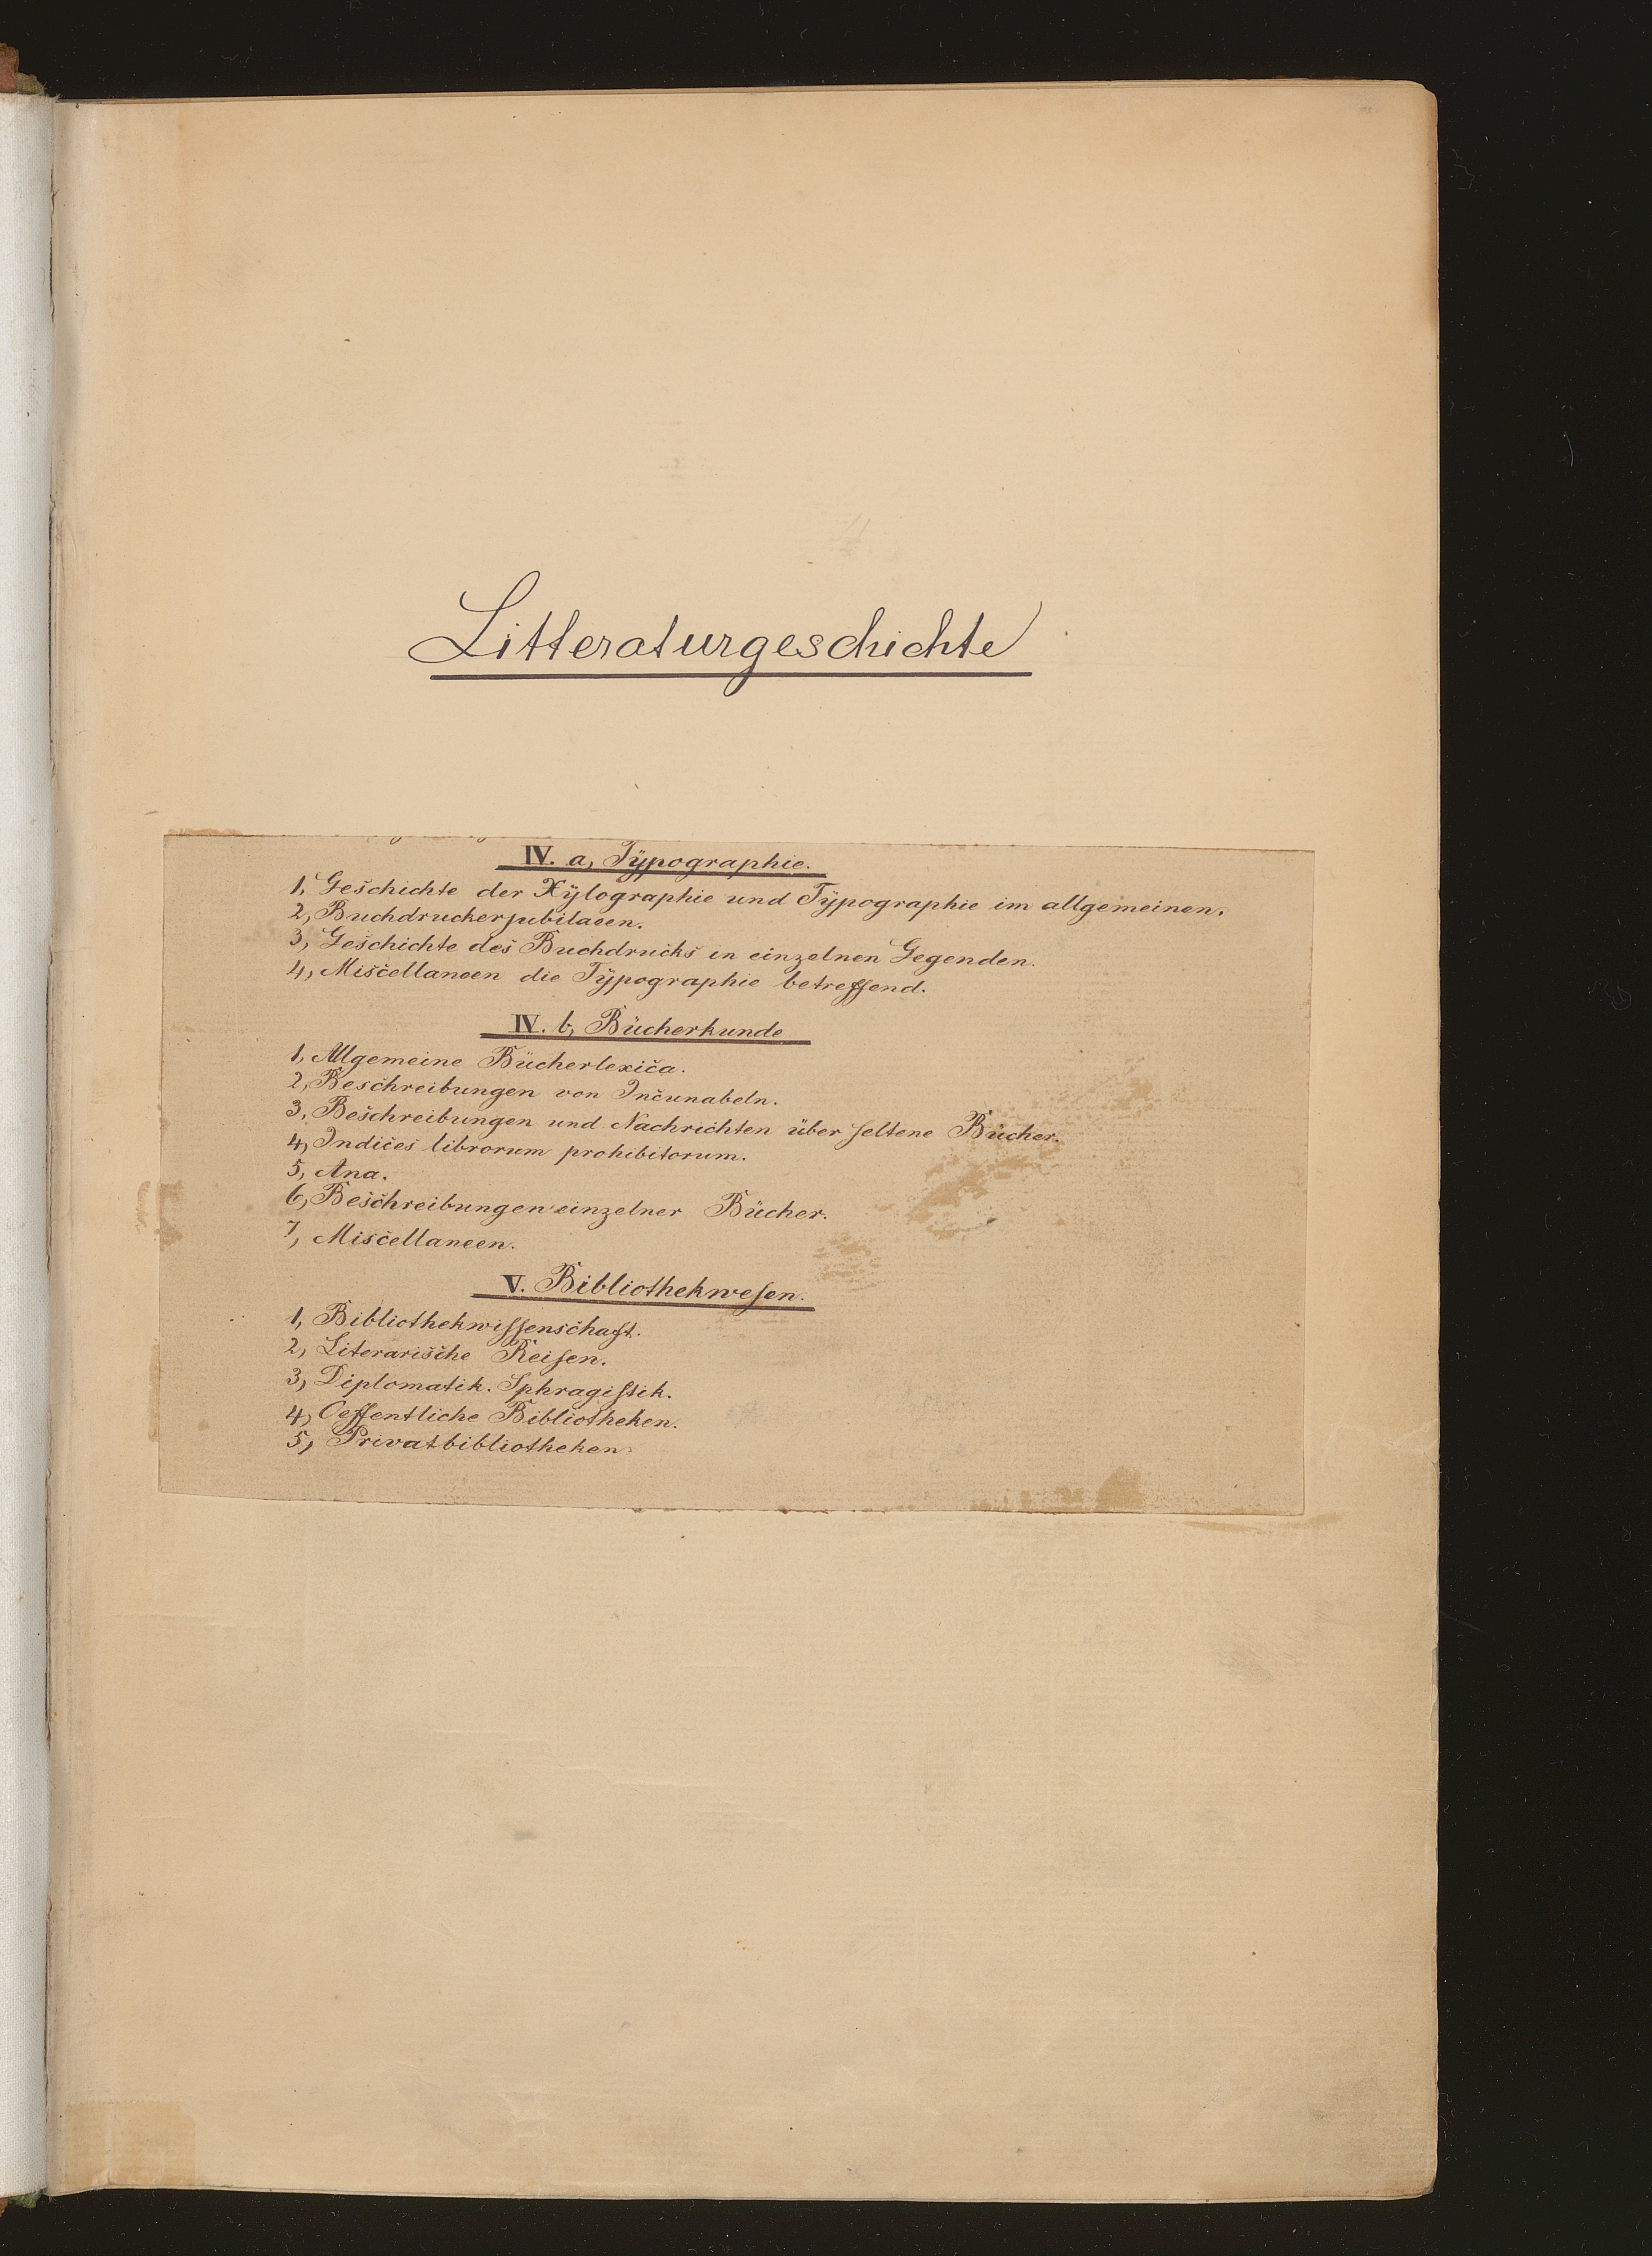 Litteraturgeschichte
IV. a, Typographie.
1, Geschichte der Xylographie und Typographie im allgemeinen.
2, Buchdruckerjubilaeen.
3, Geschichte des Buchdrucks in einzelnen Gegenden.
4, Miscellaneen die Typographie betreffend.
IV. b, Bücherkunde
1, Allgemeine Bücherlexica.
2, Beschreibungen von Incunabeln.
3, Beschreibungen und Nachrichten über ſeltene Bücher.
4, Indices librorum prohibitorum.
5, Ana.
6, Beschreibungen einzelner Bücher.
7, Miscellaneen.
V. Bibliothekweſen.
1, Bibliothekwiſſenschaft.
2, Literarische Reiſen.
3, Diplomatik. Sphragiſtik.
4, Oeffentliche Bibliotheken.
5, Privatbibliotheken.